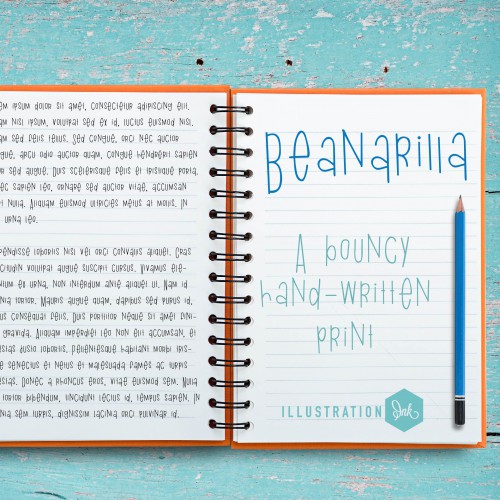 em ipsum dolor sit amet, consectetur adipiscing elit.
am nisi ipsum, volutpat sed ex id, luctus euismod nisi.
am sed felis tellus. Sed congue, orci nec auctor
gue, arcu odio auctor quam, congue hendrerit sapien
or sed augue. Duis scelerisque felis et tristique porta.
ec sapien leo, ornare sed auctor vitae, accumsan
t nulla. Aliquam euismod ultricies metus at mollis. In
urna leo.
pendisse lobortis nisl vel orci convallis aliquet. Cras
icitudin volutpat augue suscipit cursus. Vivamus ele-
nium ex urna, non interdum ante aliquet ut. Nam id
nia tortor. Mauris augue quam, dapibus sed purus id,
us consequat felis. Duis porttitor neque sit amet dini-
gravida. Aliquam imperdiet leo non elit accumsan, et
estas justo lobortis. Pellentesque habitant morbi tris-
e senectus et netus et malesuada fames ac turpis
estas. Donec a rhoncus eros, vitae euismod sem. Nulla
tortor bibendum, tincidunt lectus id, tempus sapien. In
inia sem turpis, dignissim lacinia orci pulvinar id.
Beanarilla
A bouncy
hand-written
print
ILLUSTRATION Ink